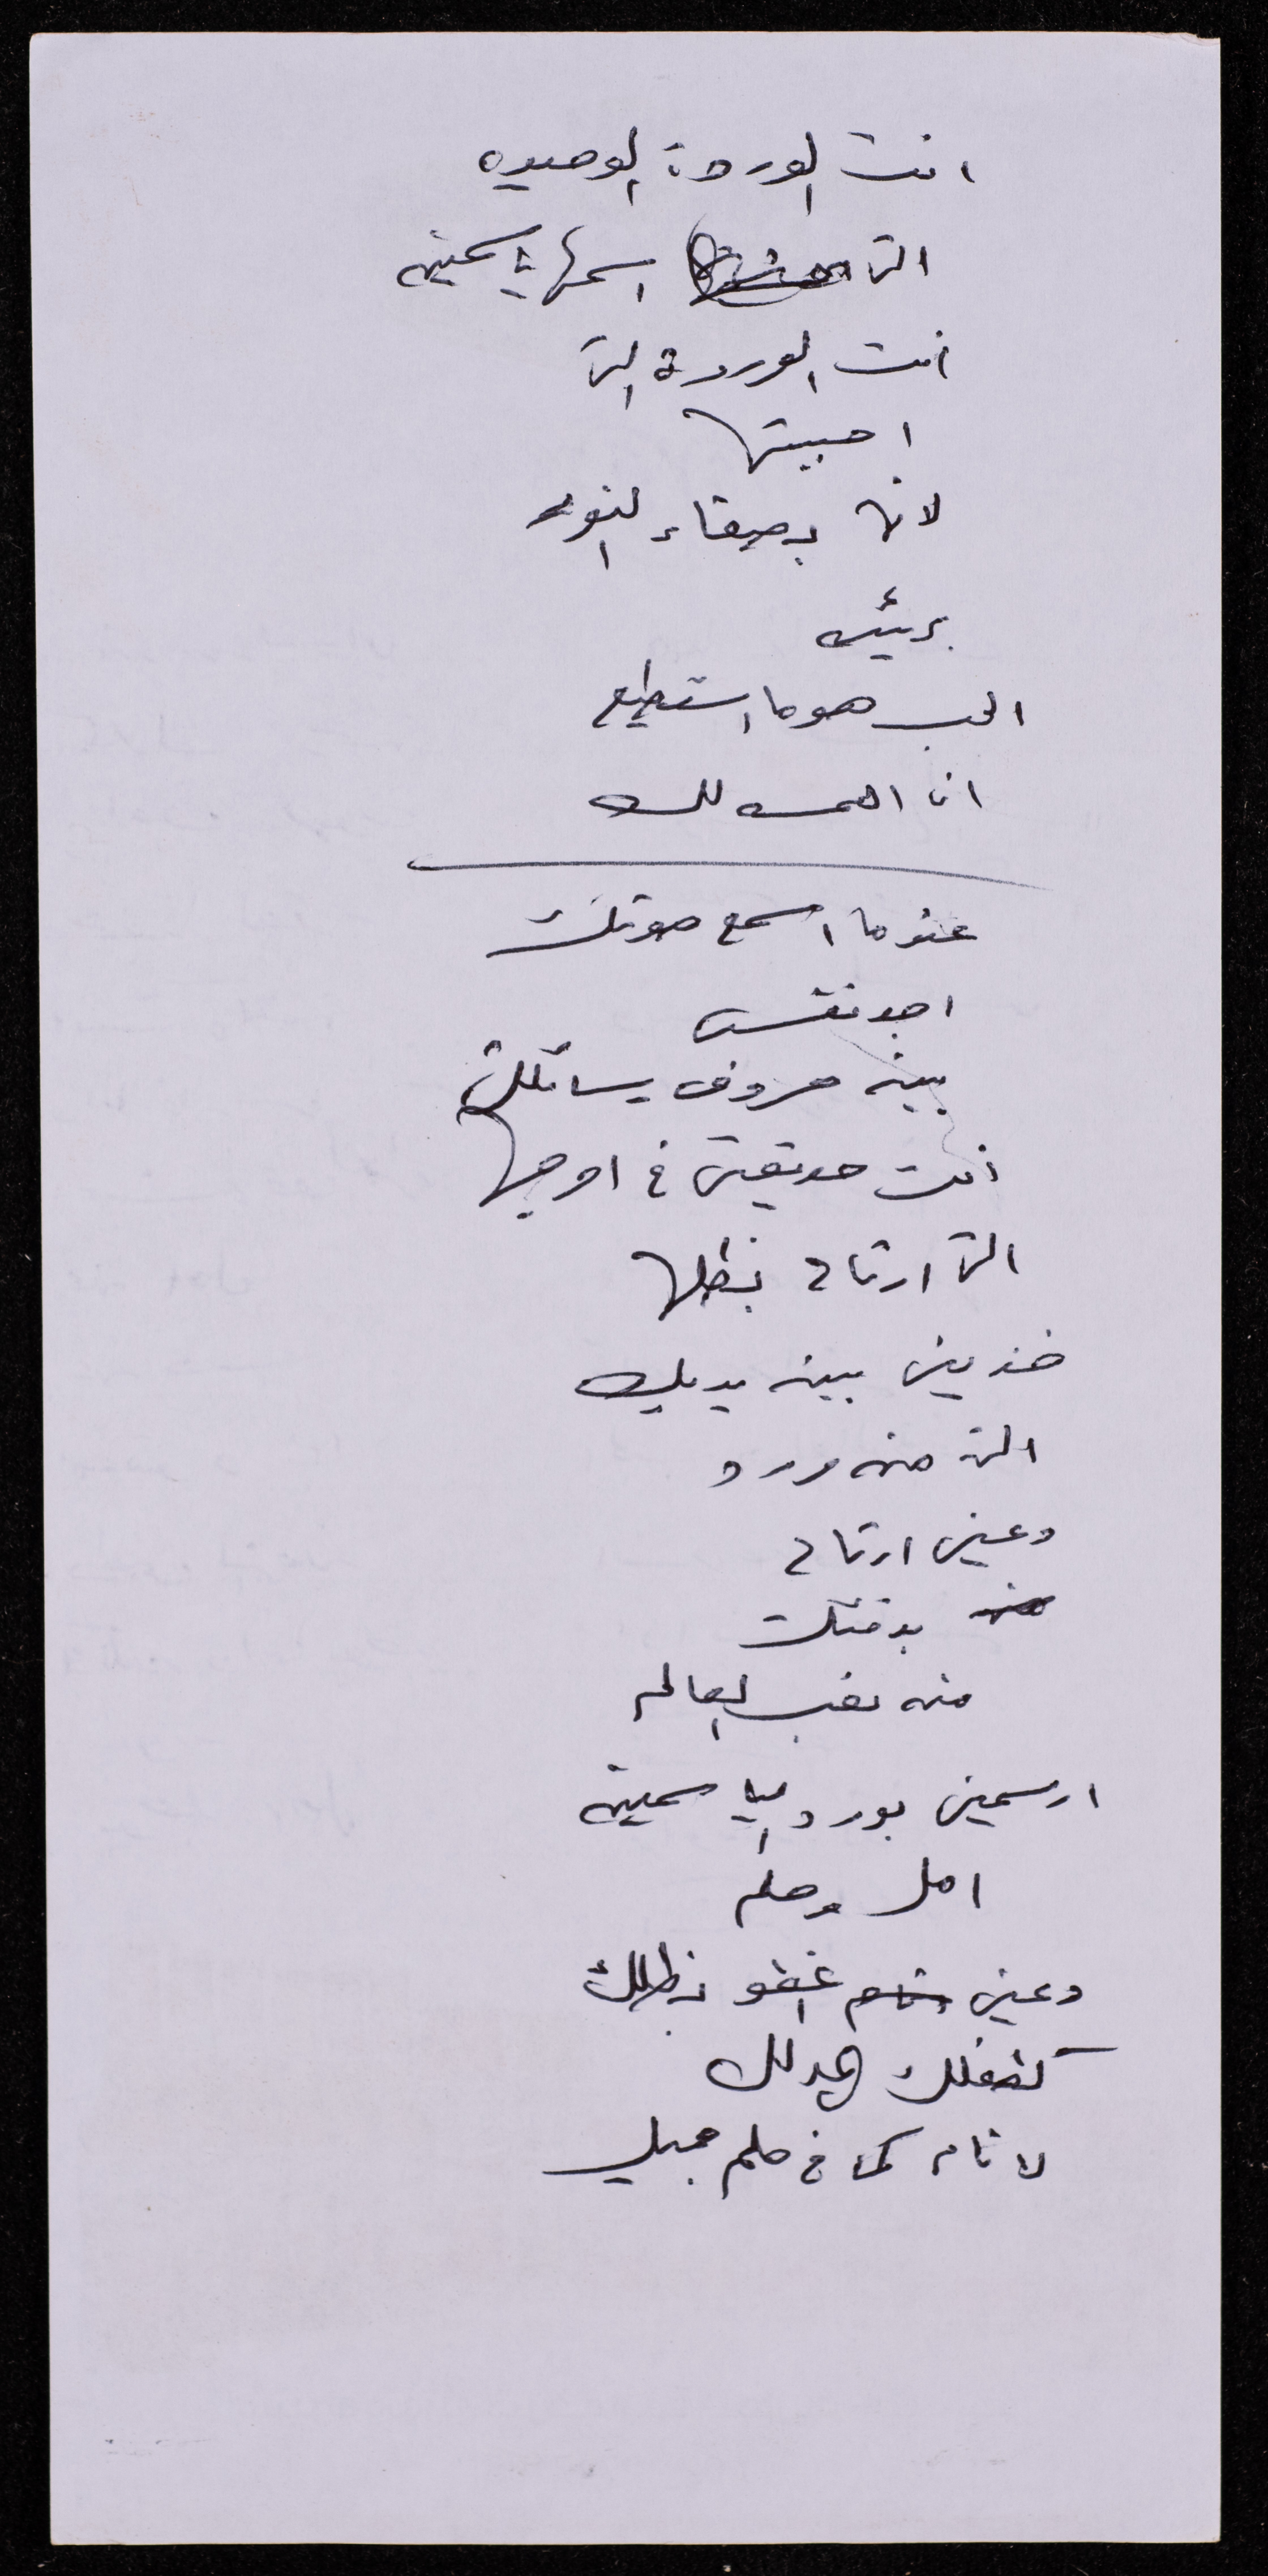 انت الوردة الوحيده
التي اسمها ياسمينه
انت الوردة التي
احببتها
لانها بصفاء النور
بريئه
الحب هو ما استطيع
ان اهمسه لك
عندما اسمع صوتك
اجد نفسي
بين حروف رسائلك
انت حديقتي في اوجها
التي ارتاح بظلها
خذيني بين يديك
التي من ورد
دعيني ارتاح
بدفئك
من تعب العالم
ارسميني بورد الياسمينه
امل وحلم
دعيني اغفو بظلك
كطفلك المدلل
لانام كما في حلم جميل